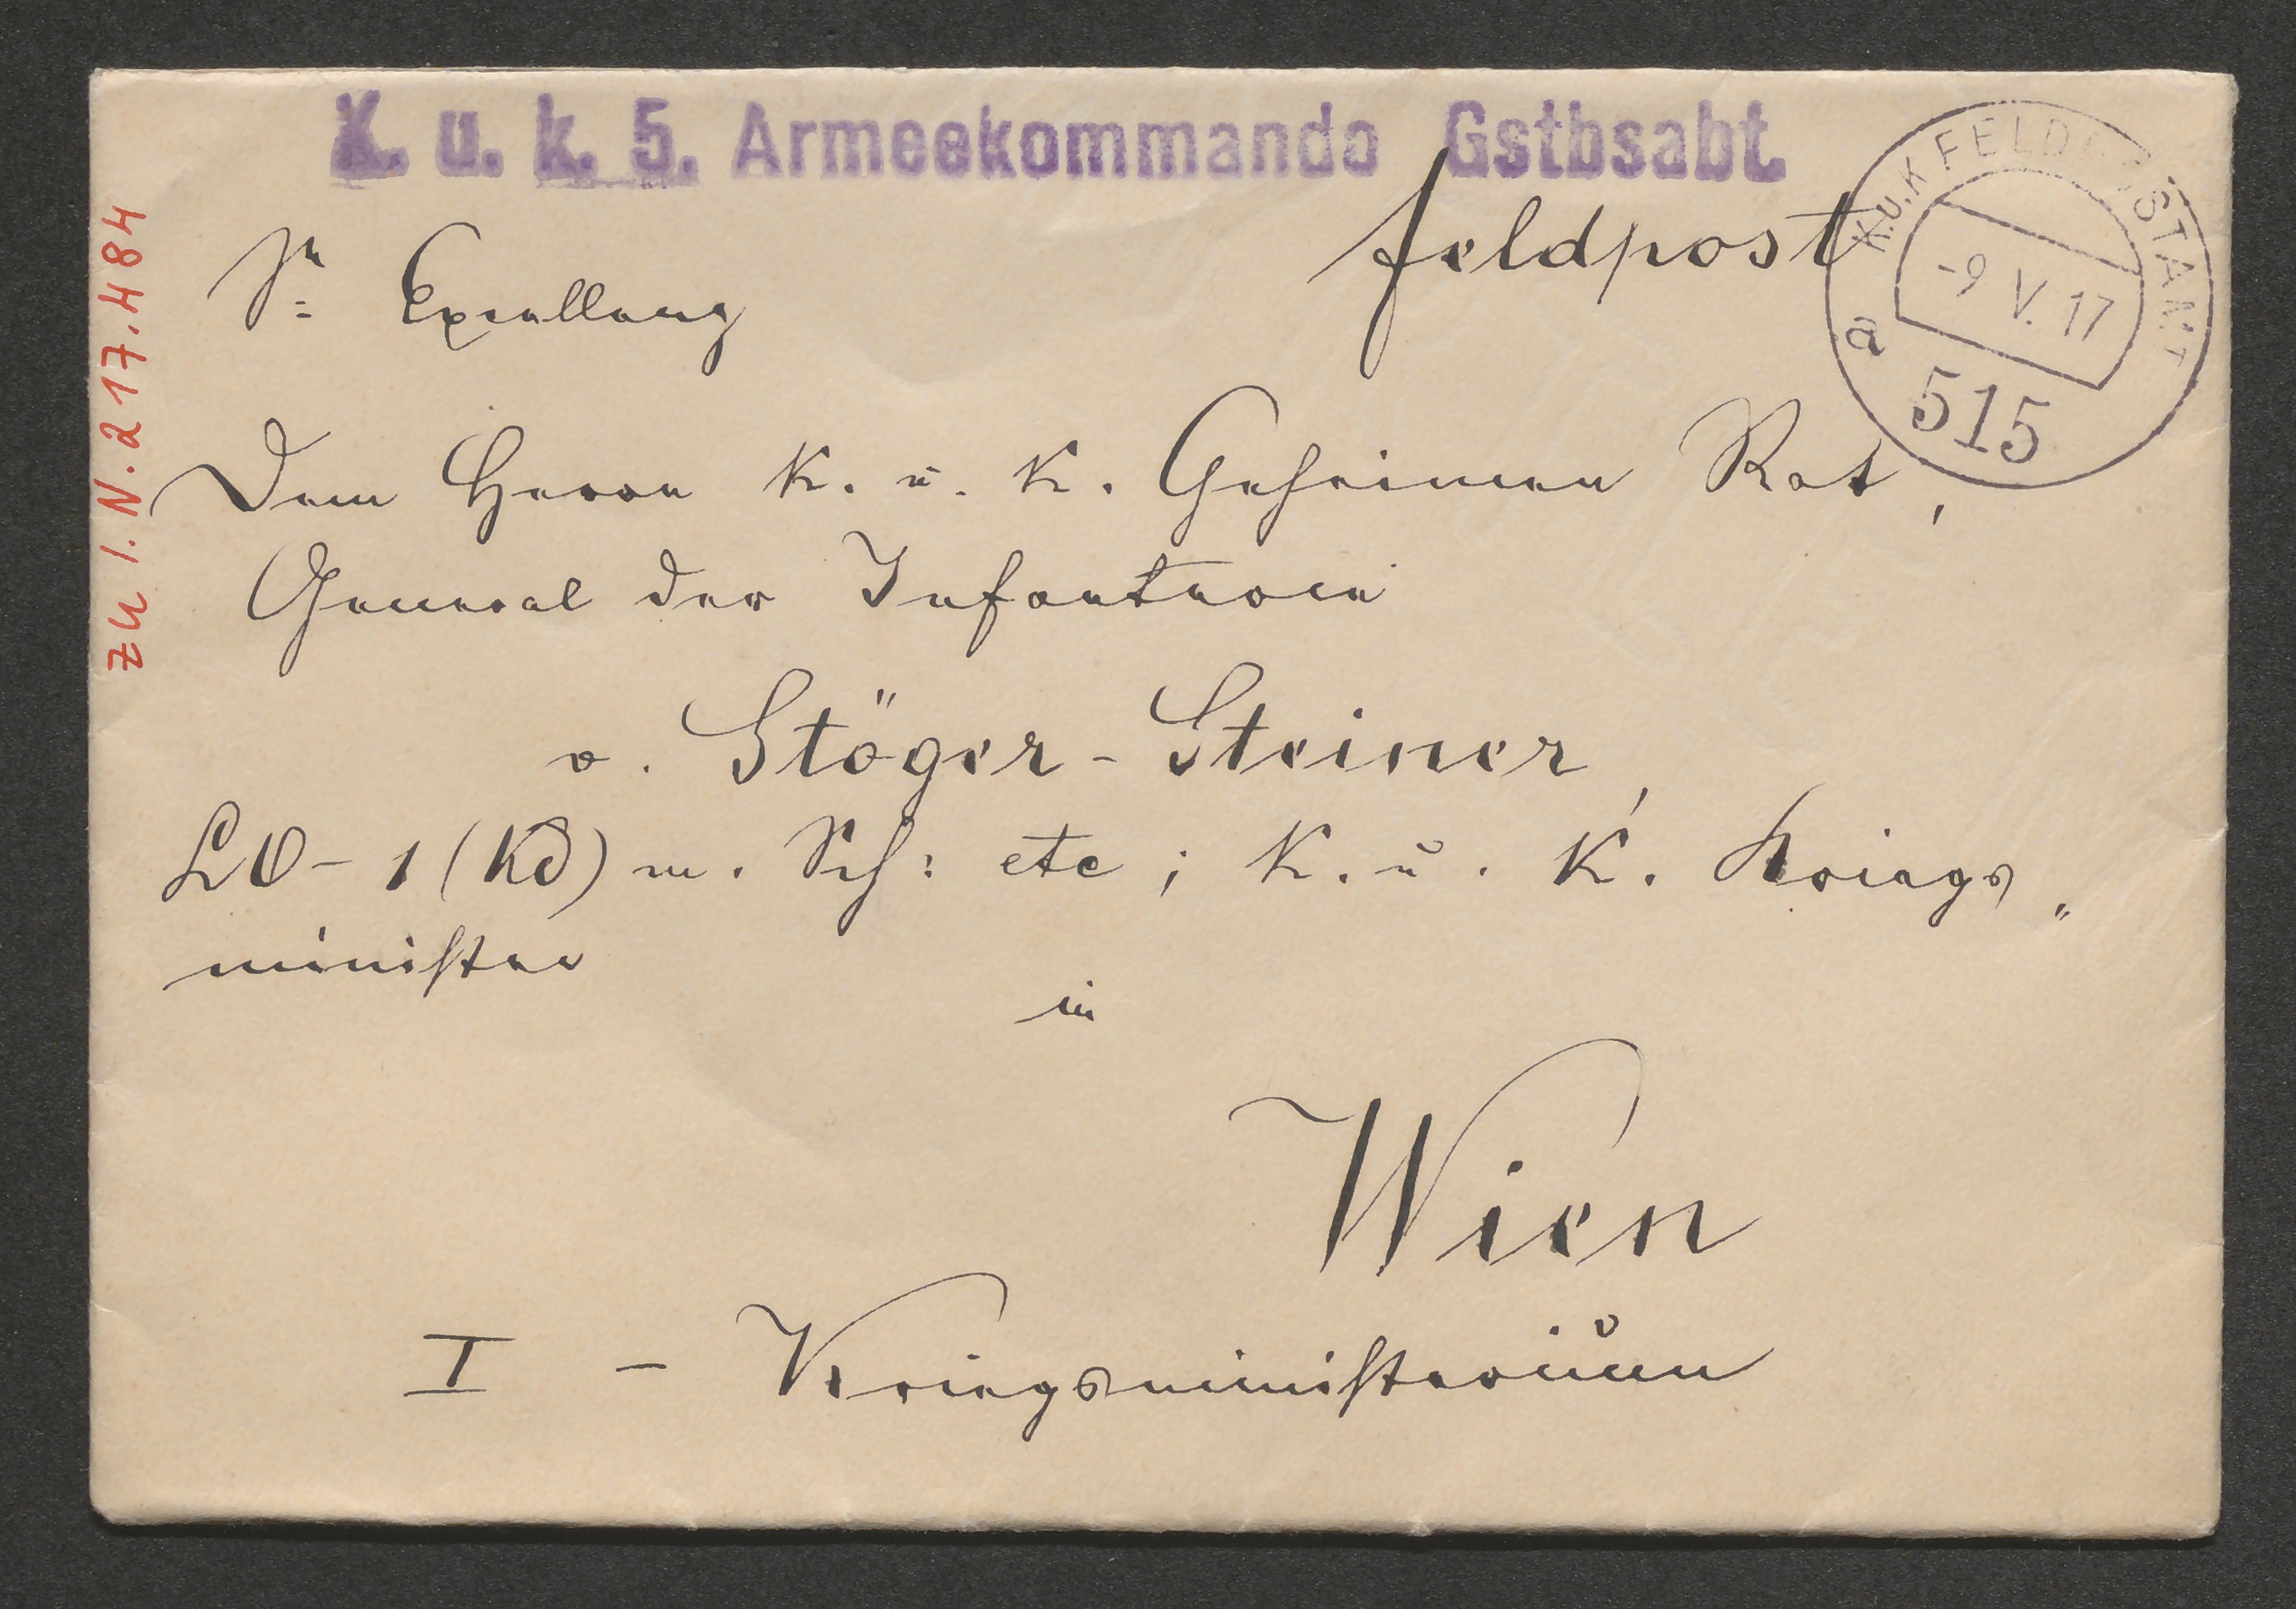 K. u. k. 5. Armeekommando Gstbsabt.
feldpost
K.u.K. FELDPOSTAMT
-9 V. 17
a
515
zu I.N. 217.484
Sr: Exzellenz
Dem Herrn K. u. K. Geheimen Rat,
General der Infanterie
v. Stöger-Steiner,
LO-1 (Kd) m. Sch: etc; K. u. K. Kriegs„
minister
in
Wien
I - Kriegsministerium